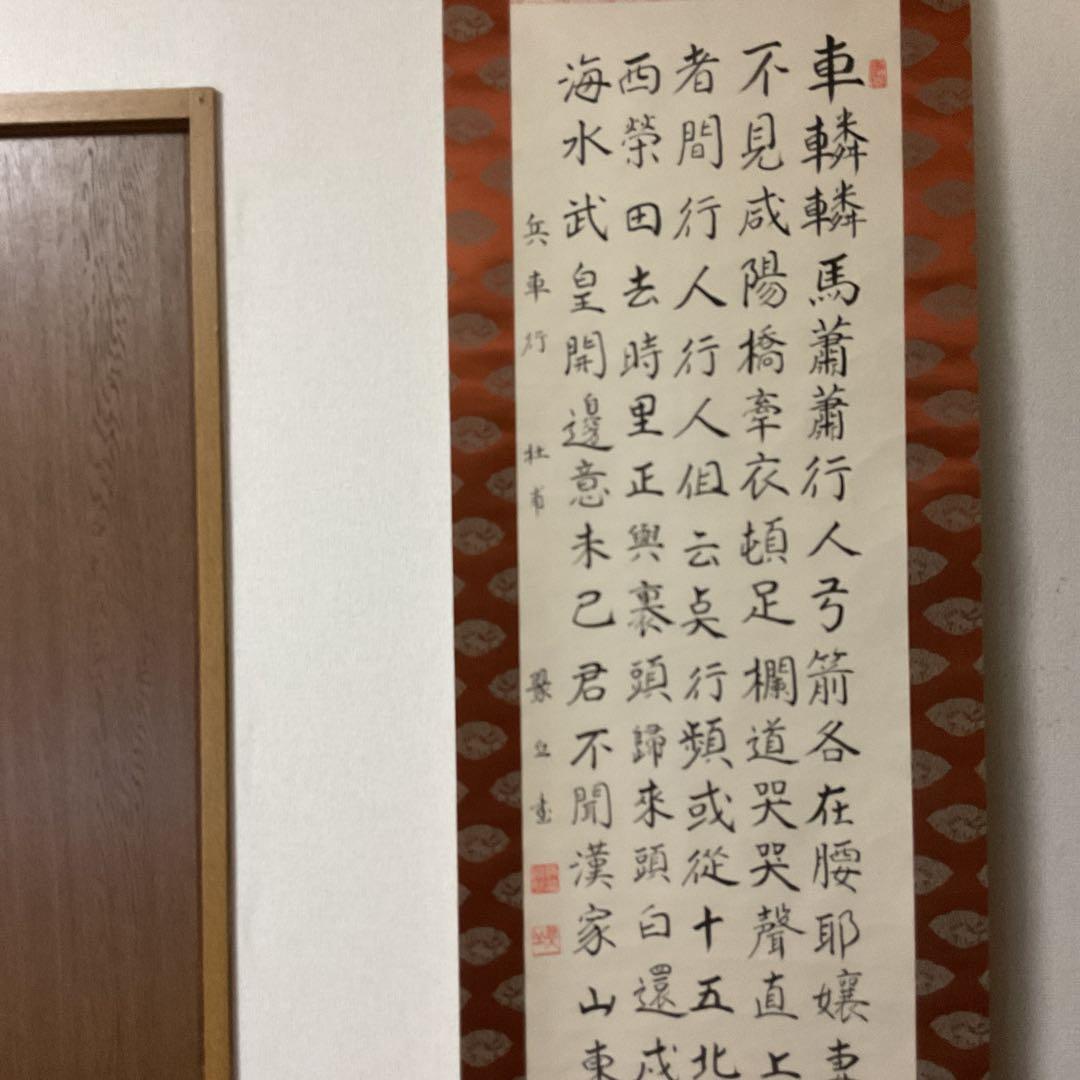 車轔轔馬蕭蕭行人弓箭各在腰耶孃妻
不見咸陽橋牽衣頓足欄道哭哭聲直上
者間行人行人但云点行頻或從十五北
西榮田去時里正與裹頭歸來頭白還戍
海水武皇開邊意未已君不聞漢家山東
兵車行 杜甫 書